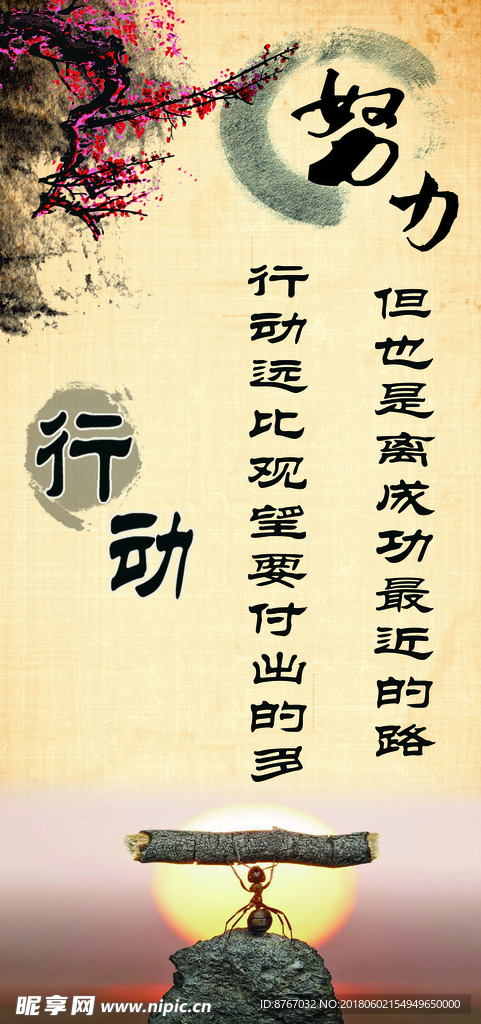 努力
但也是离成功最近的路
行动远比观望要付出的多
行动
昵享网 www.nipic.cn
ID:8767032 NO:20180602154949650000